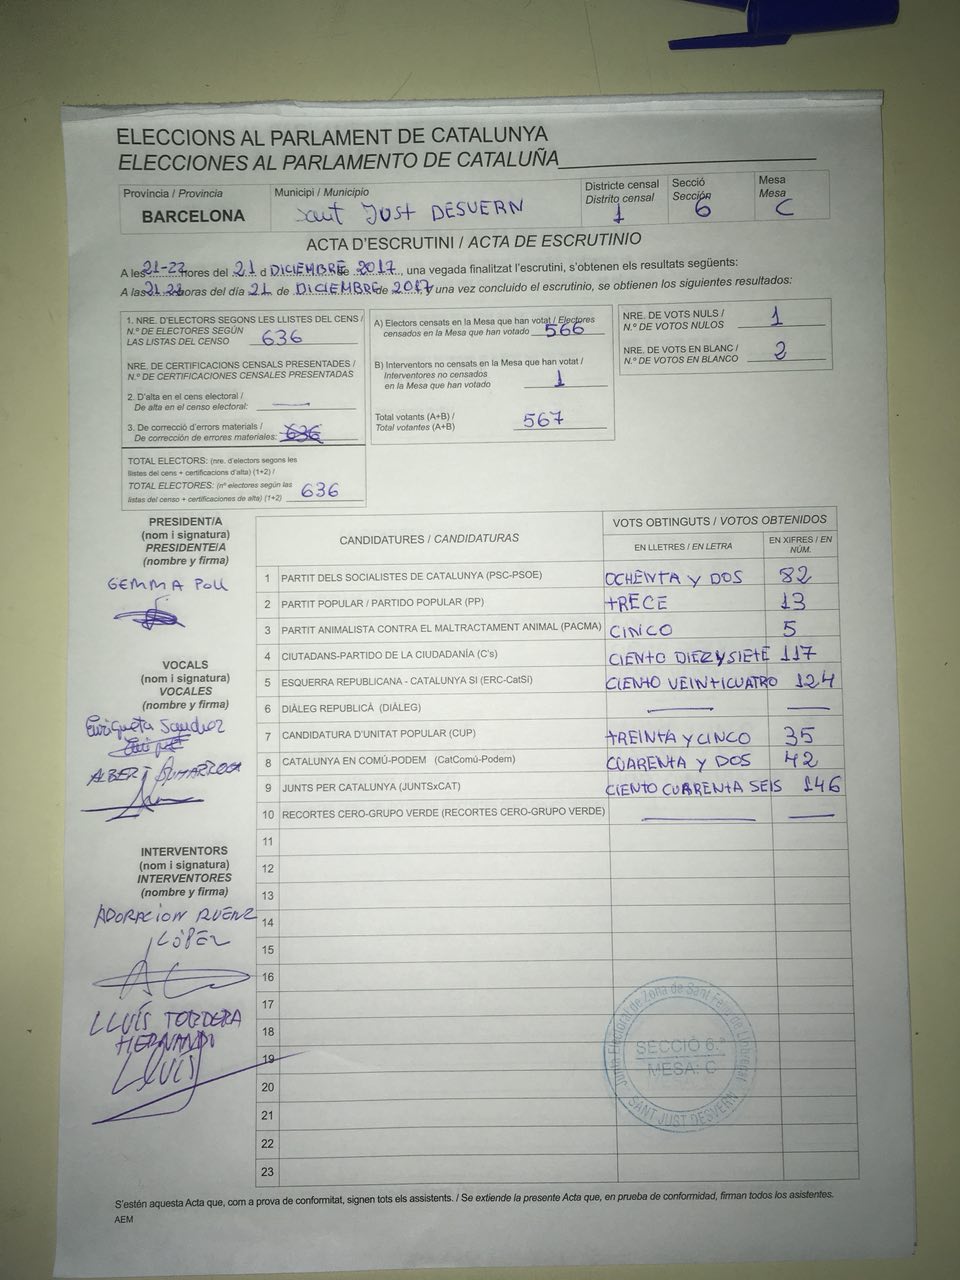 ELECCIONS AL PARLAMENT DE CATALUNYA
ELECCIONES AL PARLAMENTO DE CATALUÑA
Provincia / Provincia
BARCELONA
Municipi / Municipio
Sant JUST DESVERN
Districte censal
Distrito censal
1
Secció
Sección
6
Mesa
Mesa
C
ACTA D'ESCRUTINI / ACTA DE ESCRUTINIO
A les 21-22 hores del 21 d DICIEMBRE de 2017, una vegada finalitzat l'escrutini, s'obtenen els resultats següents:
A las 21 22 horas del día 21 de DICIEMBRE de 2017 y una vez concluido el escrutinio, se obtienen los siguientes resultados:
1. NRE. D'ELECTORS SEGONS LES LLISTES DEL CENS /
N.º DE ELECTORES SEGÚN
LAS LISTAS DEL CENSO 636
NRE. DE CERTIFICACIONS CENSALS PRESENTADES /
N.º DE CERTIFICACIONES CENSALES PRESENTADAS
2. D'alta en el cens electoral /
De alta en el censo electoral:
3. De correcció d'errors materials /
De corrección de errores materiales: 636
TOTAL ELECTORS: (nre. d'electors segons les
llistes del cens + certificacions d'alta) (1+2) /
TOTAL ELECTORES: (nº electores según las
listas del censo + certificaciones de alta) (1+2) 636
A) Electors censats en la Mesa que han votat / Electores
censados en la Mesa que han votado 566
B) Interventors no censats en la Mesa que han votat /
Interventores no censados
en la Mesa que han votado 1
Total votants (A+B) /
Total votantes (A+B) 567
NRE. DE VOTS NULS /
N.º DE VOTOS NULOS 1
NRE. DE VOTS EN BLANC /
N.º DE VOTOS EN BLANCO 2
PRESIDENT/A
(nom i signatura)
PRESIDENTE/A
(nombre y firma)
GEMMA POU
VOCALS
(nom i signatura)
VOCALES
(nombre y firma)
Enriqueta Sanchez
ALBERT
INTERVENTORS
(nom i signatura)
INTERVENTORES
(nombre y firma)
ADORACION
LÓPEZ
LLUÍS TORDERA
HERNANDO
LLUÍS
CANDIDATURES / CANDIDATURAS
VOTS OBTINGUTS / VOTOS OBTENIDOS
EN LLETRES / EN LETRA
EN XIFRES / EN
NÚM.
1 PARTIT DELS SOCIALISTES DE CATALUNYA (PSC-PSOE) OCHENTA Y DOS 82
2 PARTIT POPULAR / PARTIDO POPULAR (PP) TRECE 13
3 PARTIT ANIMALISTA CONTRA EL MALTRACTAMENT ANIMAL (PACMA) CINCO 5
4 CIUTADANS-PARTIDO DE LA CIUDADANÍA (C's) CIENTO DIEZYSIETE 117
5 ESQUERRA REPUBLICANA - CATALUNYA SI (ERC-CatSí) CIENTO VEINTICUATRO 124
6 DIÀLEG REPUBLICÀ (DIÀLEG)
7 CANDIDATURA D'UNITAT POPULAR (CUP) TREINTA Y CINCO 35
8 CATALUNYA EN COMÚ-PODEM (CatComú-Podem) CUARENTA Y DOS 42
9 JUNTS PER CATALUNYA (JUNTSxCAT) CIENTO CUARENTA SEIS 146
10 RECORTES CERO-GRUPO VERDE (RECORTES CERO-GRUPO VERDE)
11
12
13
14
15
16
17
18
19
20
21
22
23
Junta Electoral de Zona de Sant Feliu de Llobregat
SECCIÓ 6.ª
MESA: C
SANT JUST DESVERN
S'estén aquesta Acta que, com a prova de conformitat, signen tots els assistents. / Se extiende la presente Acta que, en prueba de conformidad, firman todos los asistentes.
AEM